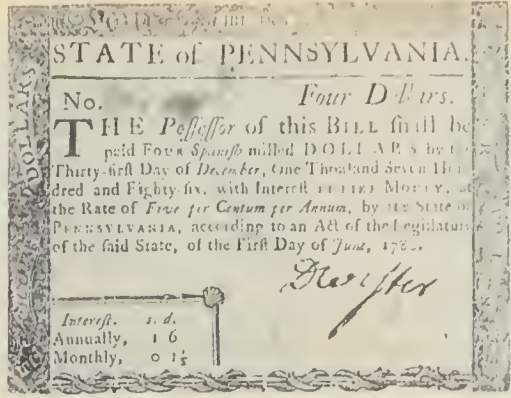 DOLLARS
STATE of PENNSYLVANIA.
No. Four D llars.
THE Poſſeſſor of this BILL ſhall be
paid FOUR Spaniſh milled DOLLARS by
Thirty-firſt Day of December, One Thouſand Seven Hun
dred and Eighty-ſix, with Intereſt in like MONEY, at
the Rate of Five per Centum per Annum, by the State of
PENNSYLVANIA, according to an Act of the Legiſlature
of the ſaid State, of the Firſt Day of June, 178
Intereſt. s. d.
Annually, 1 6
Monthly, 0 1½